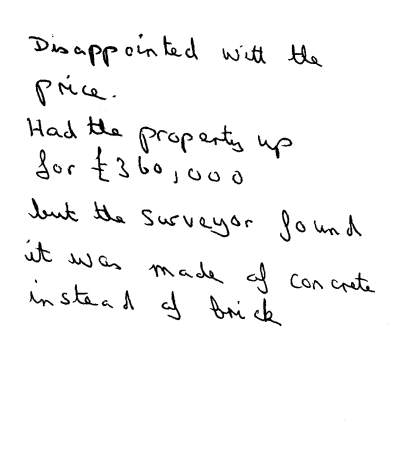 Disappointed with the
price.
Had the property up
for £360,000
but the surveyor found
it was made of concrete
instead of brick